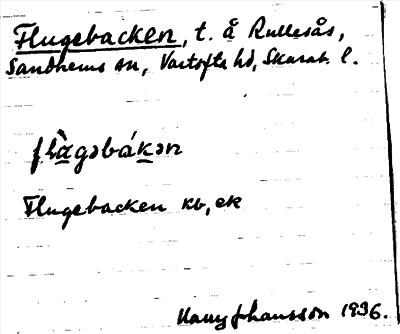 Flugebacken, t. å Rullesås,
Sandhems sn, Vartofta hd, Skarab. l.
flu̠gəbákən
Flugebacken kb, ek
Harry Johansson 1936.